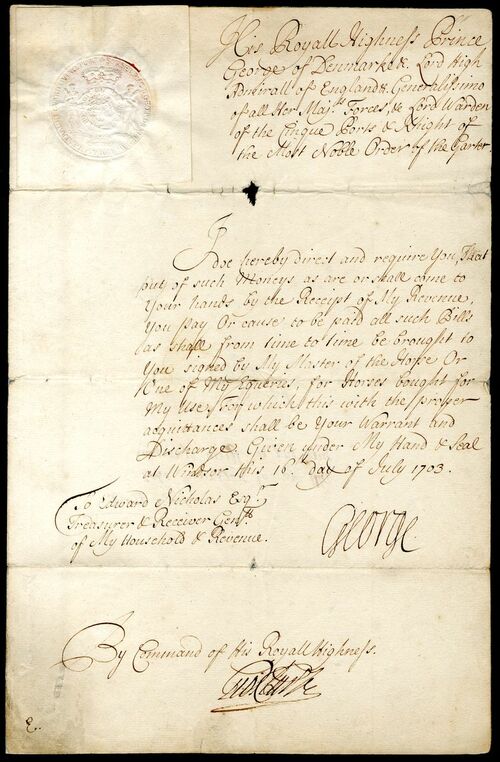 His Royall Highness Prince
George of Denmarke &c. Lord High
Admirall of England &c. Generalissimo
of all Her Maj.ts Forces, & Lord Warden
of the Cinque Ports & Knight of
the Most Noble Order of the Garter
I doe hereby direct and require You, That
out of such Moneys as are or shall come to
Your hands by the Receipt of My Revenue,
You pay Or cause to be paid all such Bills
as shall from time to time be brought to
You signed by My Master of the Horse Or
One of My Equeries, for Horses bought for
My Use, For which this with the proper
acquittances shall be Your Warrant and
Discharge. Given under My Hand & Seal
at Windsor this 16.th day of July 1703.
To Edward Nicholas Esq.r
Treasurer & Receiver Gen.ll
of My Household & Revenue.
George
By Command of His Royall Highness.